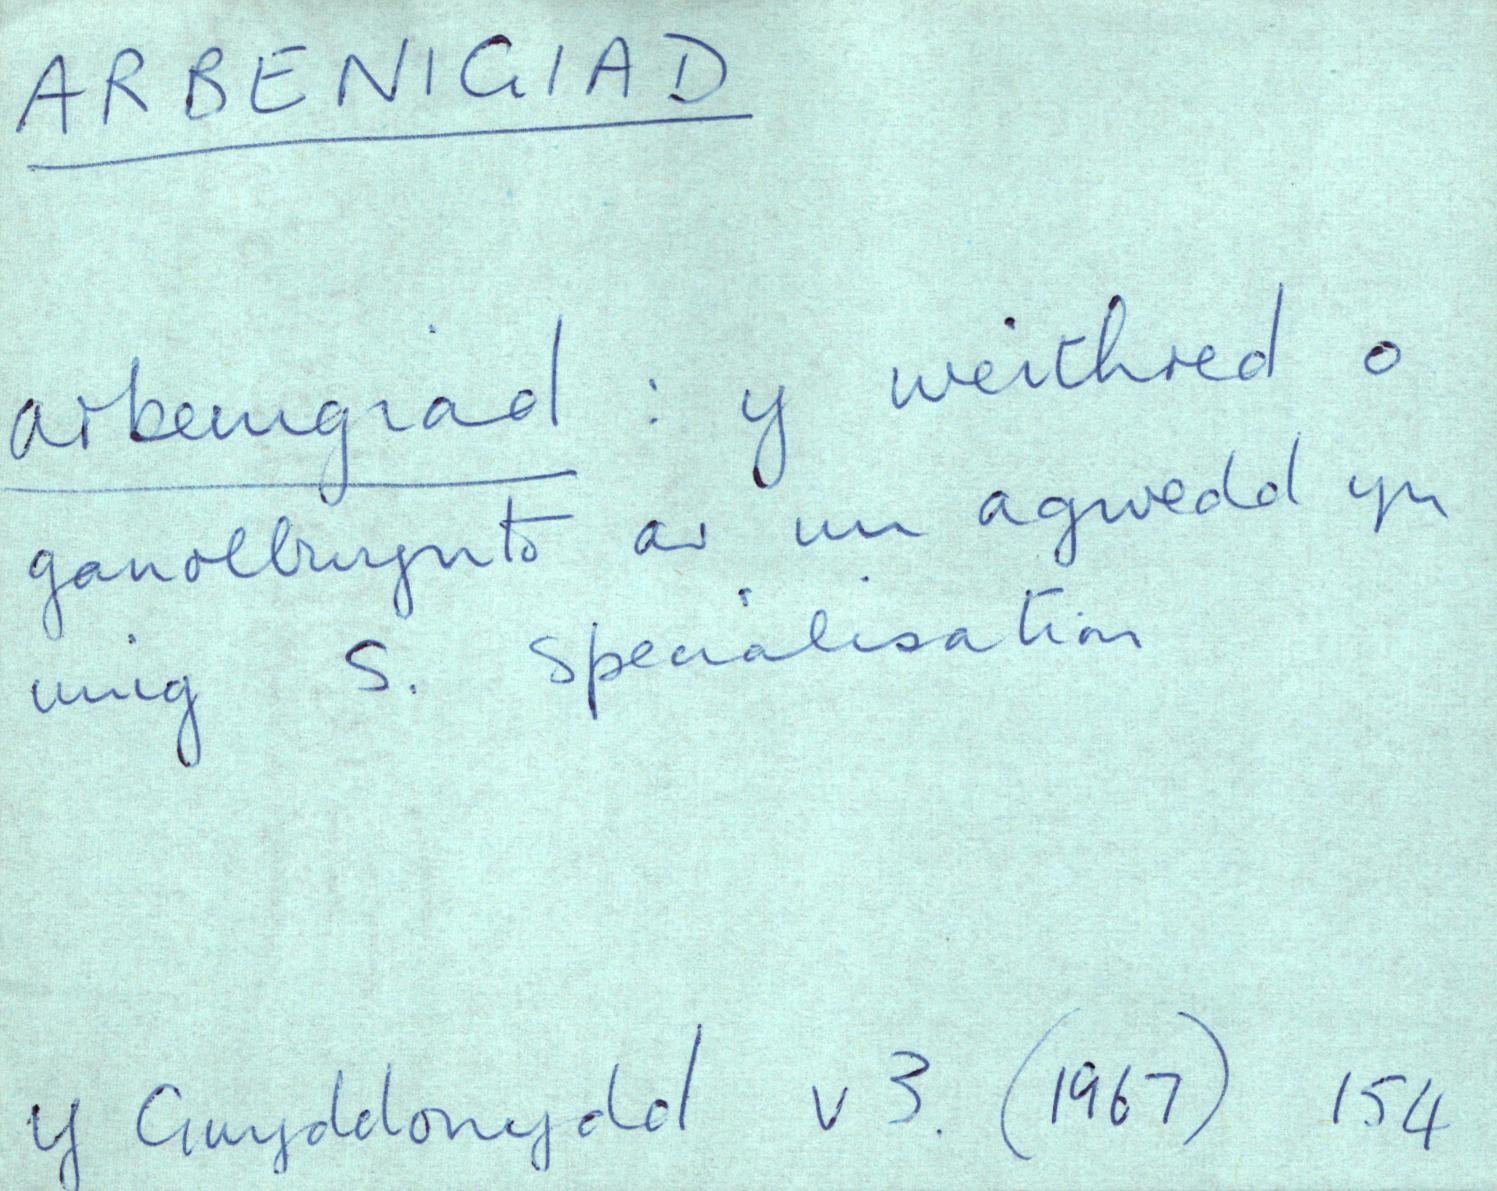 ARBENIGIAD
arbenigiad : y weithred o
ganolbwynto ar un agwedd yn
unig S. specialisation
y Gwyddonydd v 3. (1967) 154